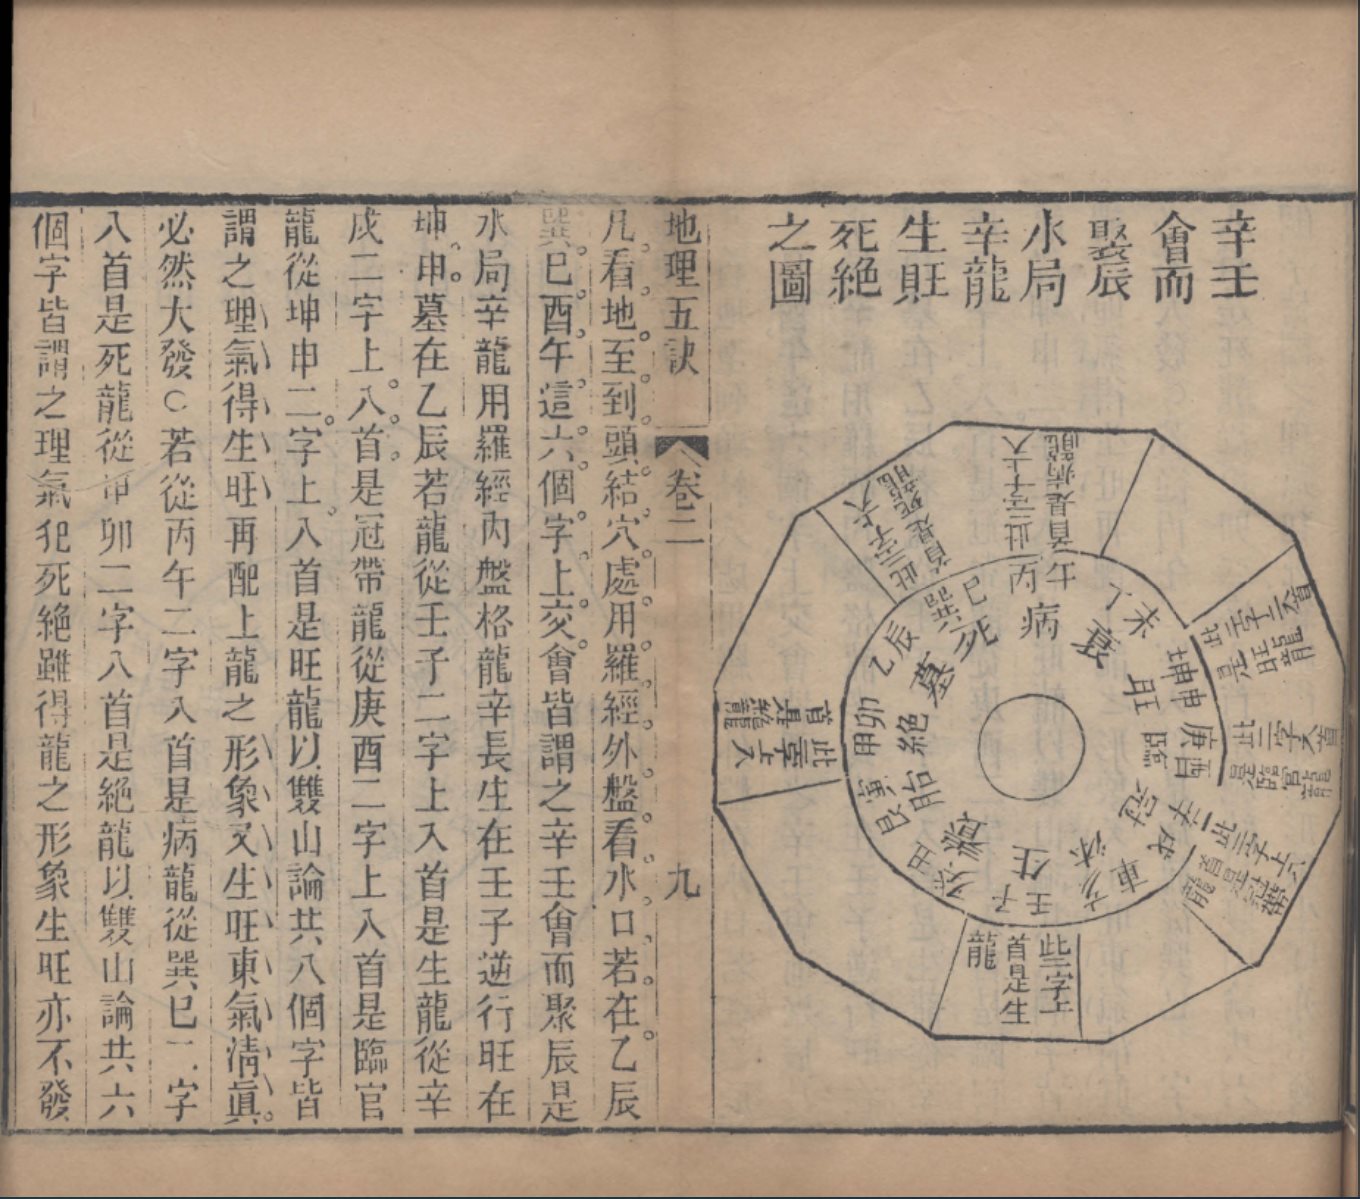 辛壬
會而
聚辰
水局
辛龍
生旺
死絶
之圖
此二字上入
首是病龍
此二字上入
首是死龍
此二字上入首
是旺龍
此二字入首
是臨官龍
此二字上入
首是冠帶
龍
此二字上
首是生
龍
此二字上入
首是絶龍
丙午
丁未
坤申
庚酉
辛戌
乾亥
壬子
癸丑
艮寅
甲卯
乙辰
巽巳
病
衰
旺
臨
冠
沐
生
養
胎
絶
墓
死
地理五訣
卷二
九
凡看地至到頭結穴處用羅經外盤看水口若在乙辰
巽巳酉午這六個字上交會皆謂之辛壬會而聚辰是
水局辛龍用羅經內盤格龍辛長生在壬子逆行旺在
坤申墓在乙辰若龍從壬子二字上入首是生龍從辛
戌二字上入首是冠帶龍從庚酉二字上入首是臨官
龍從坤申二字上入首是旺龍以雙山論共八個字皆
謂之理氣得生旺再配上龍之形象又生旺東氣清眞
必然大發○若從丙午二字入首是病龍從巽巳二字
入首是死龍從甲卯二字入首是絶龍以雙山論共六
個字皆謂之理氣犯死絶雖得龍之形象生旺亦不發